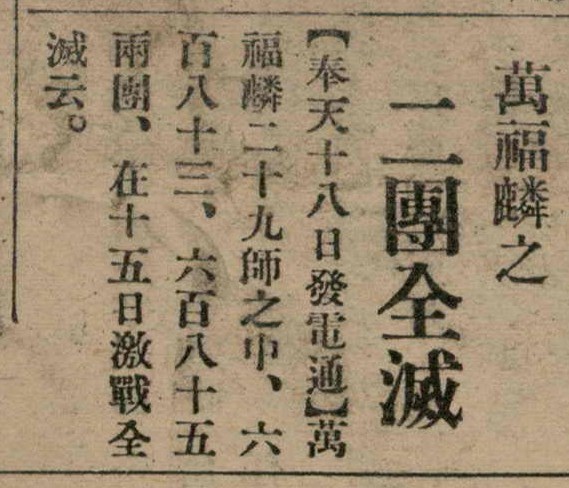 萬福麟之
二團全滅
【奉天十八日發電通】萬
福麟二十九師之中、六
百八十三、六百八十五
兩團、在十五日激戰全
滅云。